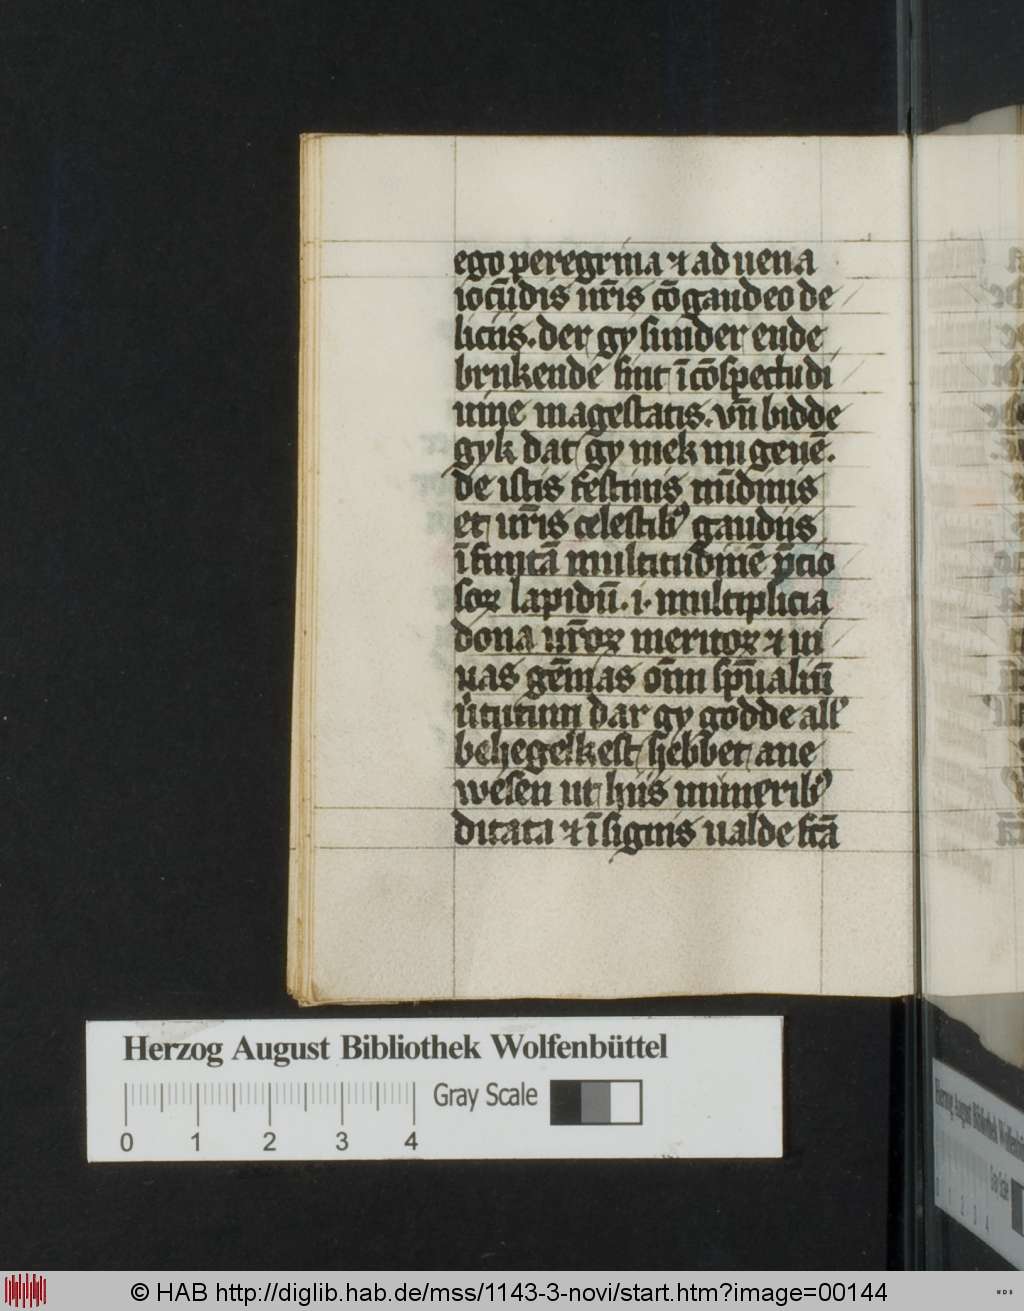 ego peregrina ⁊ aduena
iocūdis ur̄is cōgaudeo de
liciis. der gy sunder ende
brukende sint ī cōspectu di
uine magestatis. vn̄ bidde
gyk dat gy mek nu geuē.
de istis festiuis mūdinis
et ur̄is celestibꝰ gaudiis
īfinitā multitudinē p̄cio
soꝝ lapidū. i. multiplicia
dona ur̄oꝝ meritoꝝ ⁊ ui
uas gēmas oīm sp̄ualiū
u̓tutum dar gy godde all'
behegelkest hebbet ane
wesen ut hiis muneribꝰ
ditata ⁊ īsignis ualde scā
Herzog August Bibliothek Wolfenbüttel
Gray Scale
0 1 2 3 4
© HAB http://diglib.hab.de/mss/1143-3-novi/start.htm?image=00144